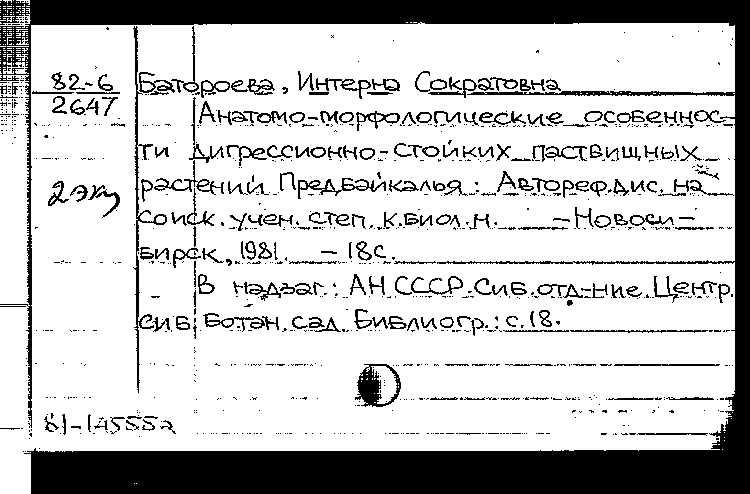 82-6 Батороева, Интерна Сократовна
2647 Анатомо-морфологические особеннос-
ти дигрессионно-стойких пастбищных
2 экз растений Предбайкалья: Автореф.дис. на
соиск. учен. степ. к.биол.н. – Новоси-
бирск, 1981. – 18с.
В надзаг.: АН СССР. Сиб. отд-ние. Центр.
сиб. ботан. сад. Библиогр.: с.18.
81-14555а